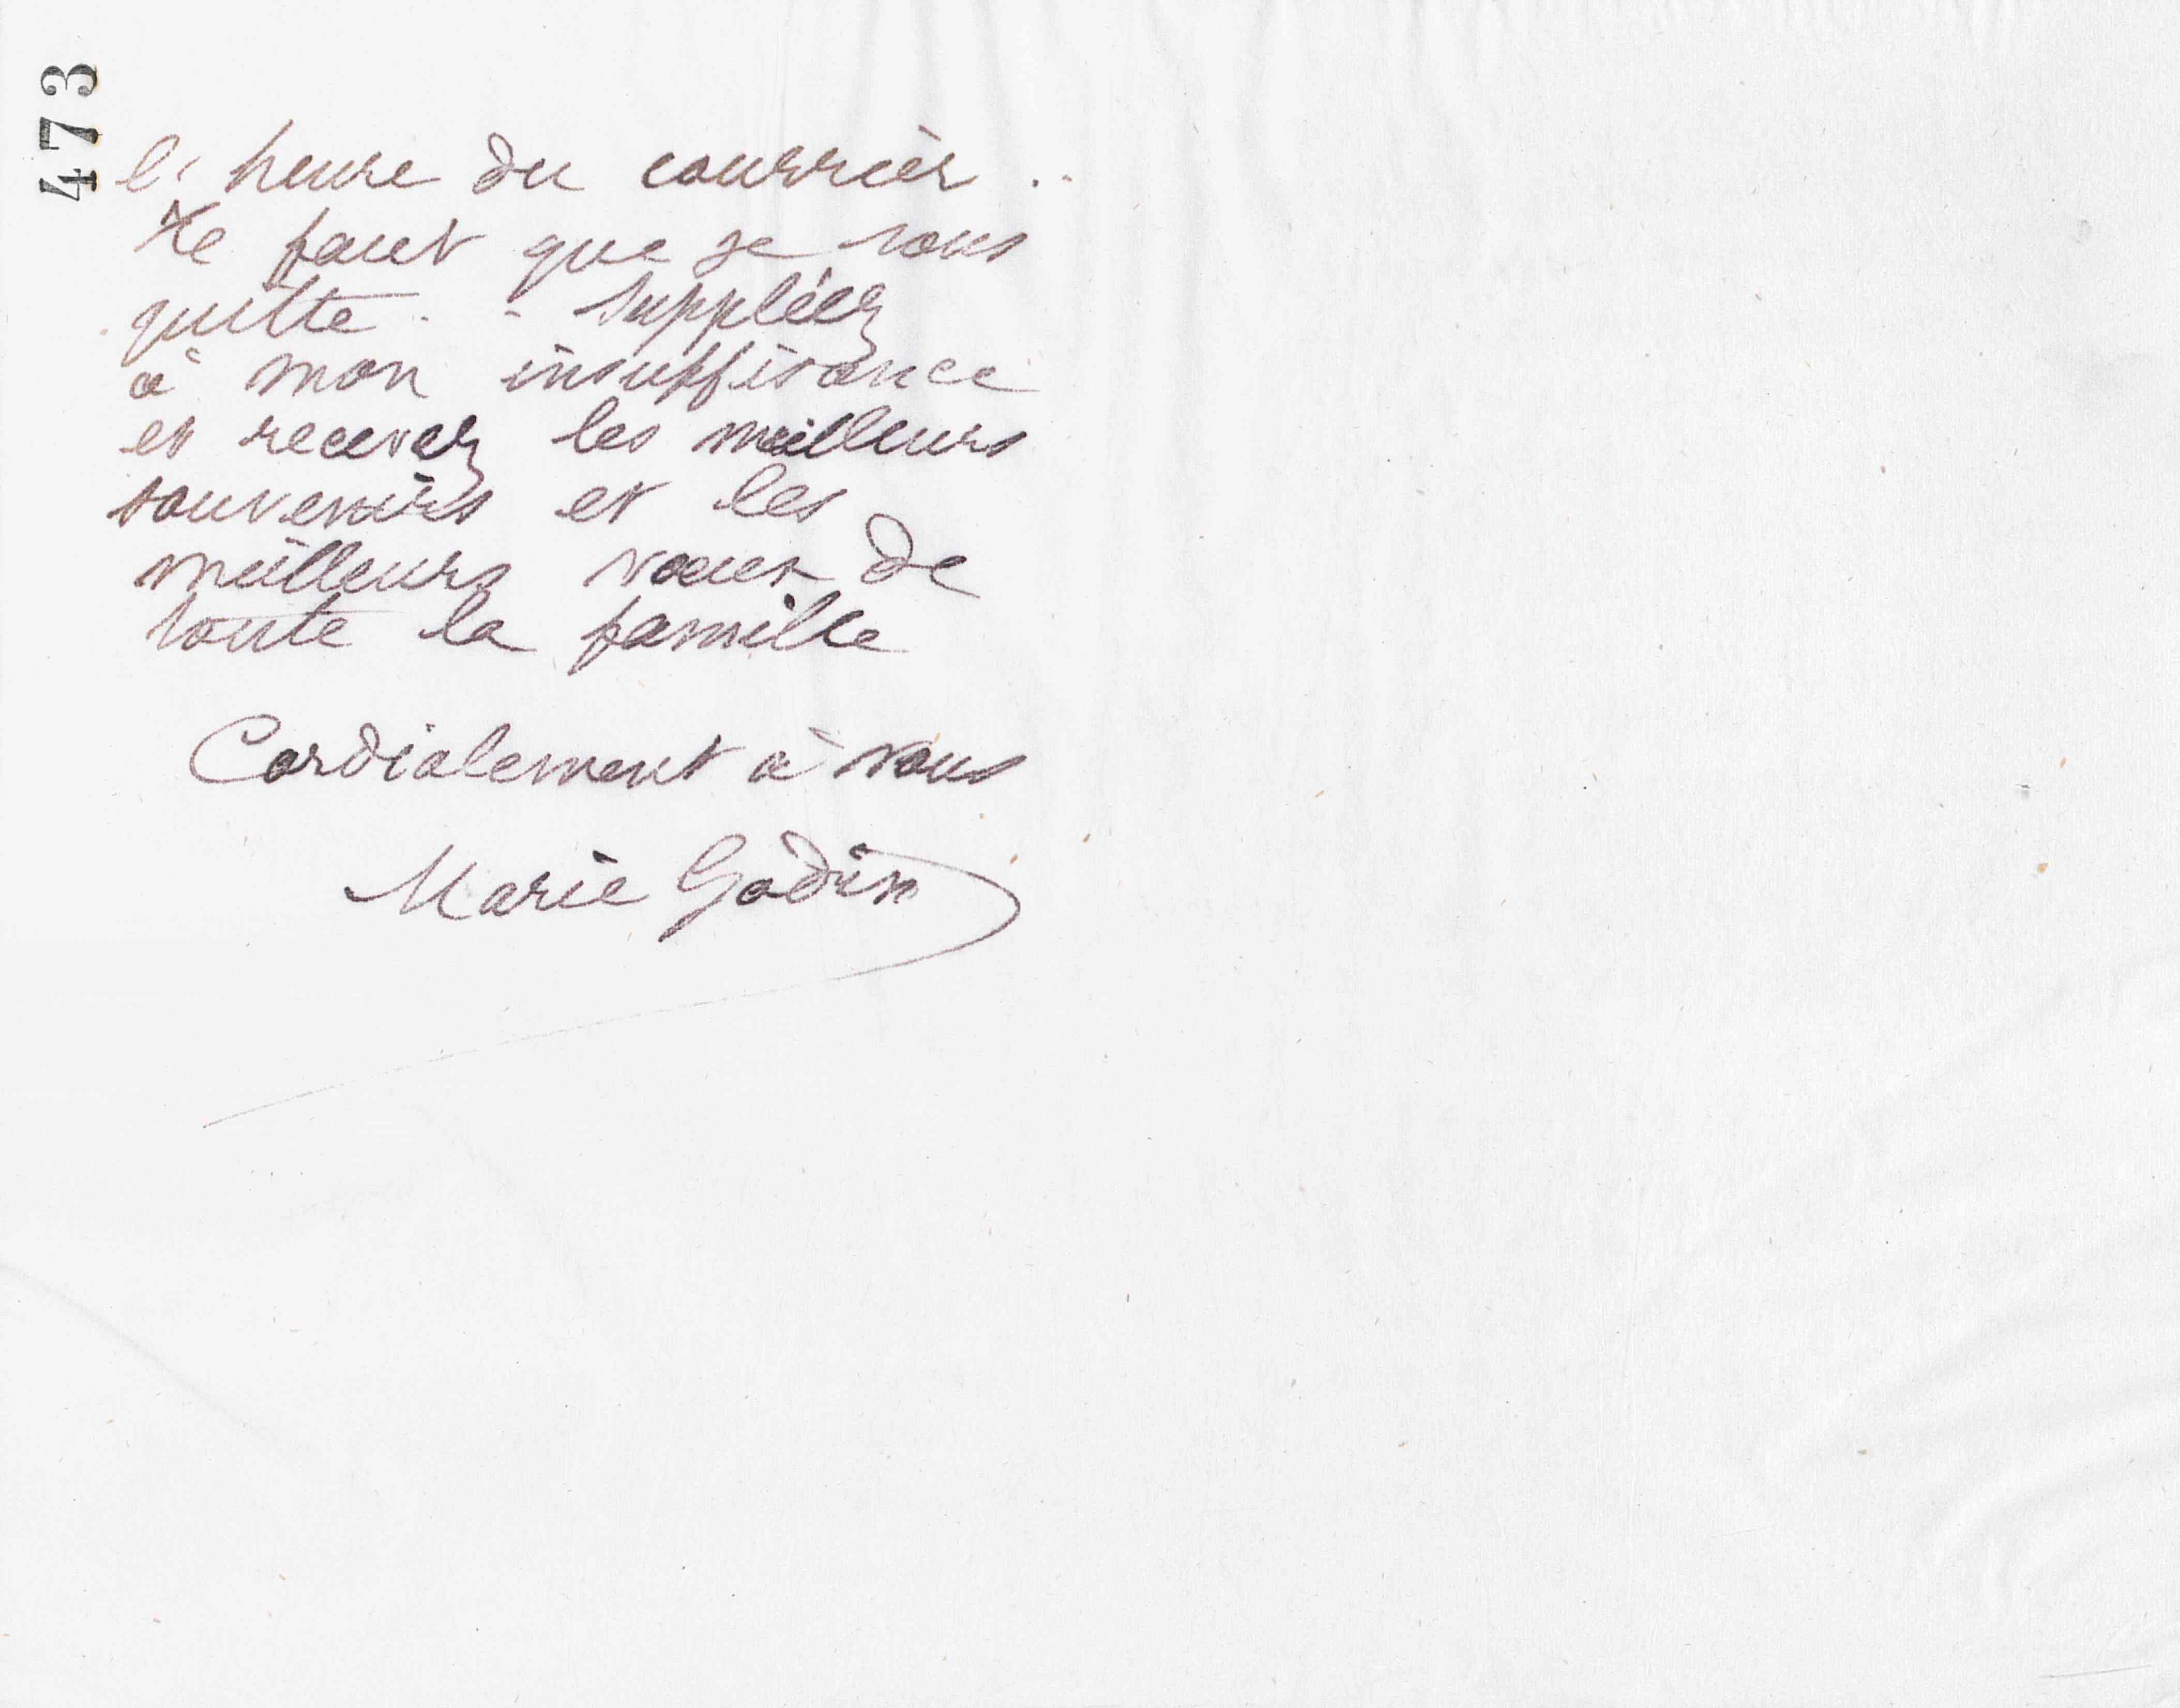 473
l'heure du courrier ..
Il faut que je vous
quitte . - Suppléez
à mon insuffisance
et recevez les meilleurs
souvenirs et les
meilleurs vœux de
toute la famille
Cordialement à vous
Marie Godin